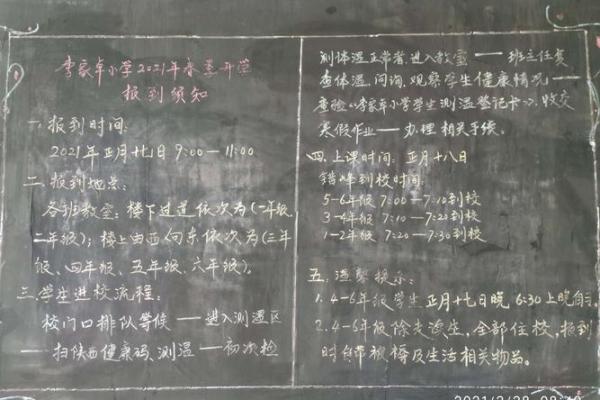 李家卓小学2021年春季开学
报到须知
一、报到时间:
2021年正月十七日 9:00—11:00
二、报到地点:
各班教室: 楼下过道依次为(一年级、
二年级); 楼上由西向东依次为(三年
级、四年级、五年级、六年级)。
三、学生进校流程:
校门口排队等候——进入测温区
——扫陕西健康码、测温——初次检
测体温正常者,进入教室——班主任复
查体温,问询、观察学生健康情况——
查验《李家卓小学学生测温登记卡》、收交
寒假作业——办理相关手续。
四、上课时间: 正月十八日
错峰到校时间:
5-6年级 7:00—7:10到校
3-4年级 7:10—7:20到校
1-2年级 7:20—7:30到校
五: 温馨提示:
1、4-6年级学生正月十七日晚 6:30上晚自习
2、4-6年级除走读生,全部住校,报到
时自带被褥及生活相关物品。